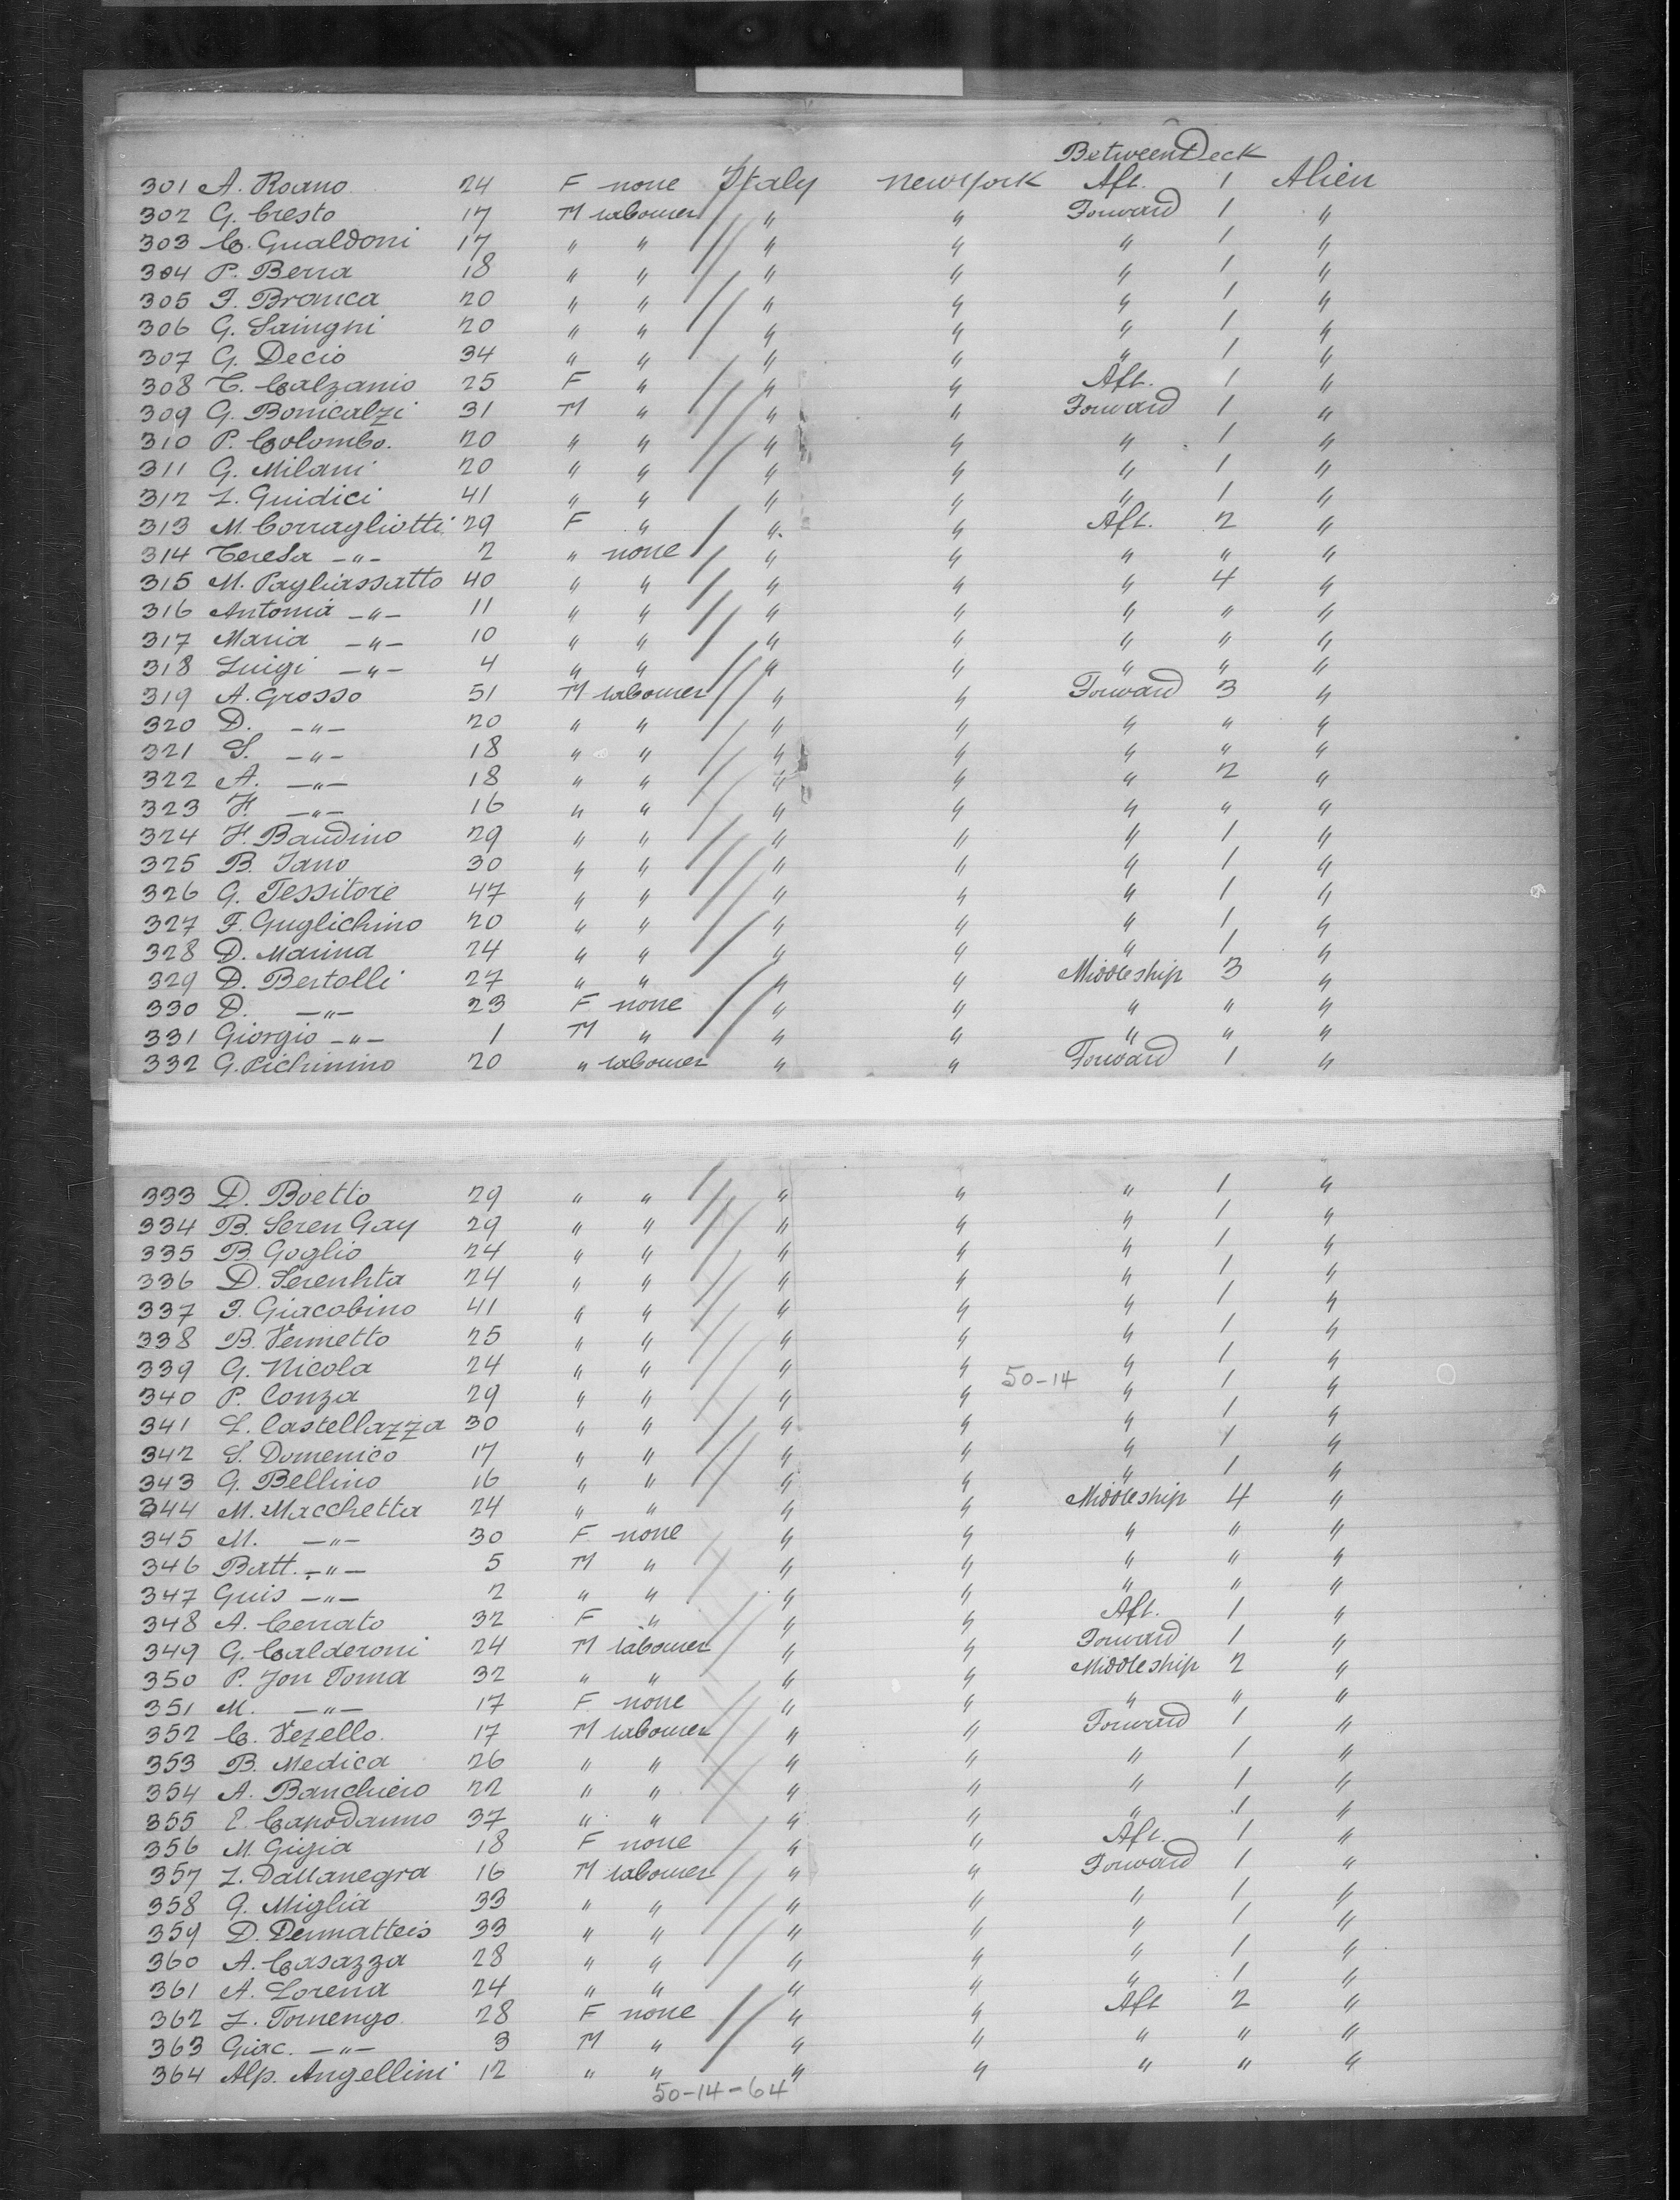 Between Deck
301 A. Roano 24 F none Italy New York Aft. 1 Alien
302 G. Cresto 17 M labourer " " Forward 1 "
303 C. Gualdoni 17 " " " " " 1 "
304 P. Berra 18 " " " " " 1 "
305 F. Bronica 20 " " " " " 1 "
306 G. Saingni 20 " " " " " 1 "
307 G. Decio 34 " " " " " 1 "
308 T. Calzanio 25 F " " " Aft. 1 "
309 G. Bonicalzi 31 M " " " Forward 1 "
310 P. Colombo. 20 " " " " " 1 "
311 G. Milani 20 " " " " " 1 "
312 L. Guidici 41 " " " " " 1 "
313 M. Corragliotti 29 F " " " Aft. 2 "
314 Teresa -"- 2 " none " " " " "
315 M. Pagliassatto 40 " " " " " 4 "
316 Antonia -"- 11 " " " " " " "
317 Maria -"- 10 " " " " " " "
318 Luigi -"- 4 " " " " " " "
319 A. Grosso 51 M labourer " " Forward 3 "
320 D. -"- 20 " " " " " " "
321 S. -"- 18 " " " " " " "
322 A. -"- 18 " " " " " 2 "
323 F. -"- 16 " " " " " " "
324 F. Baudino 29 " " " " " 1 "
325 B. Iano 30 " " " " " 1 "
326 G. Tessitore 47 " " " " " 1 "
327 F. Guglichino 20 " " " " " 1 "
328 D. Marina 24 " " " " " 1 "
329 D. Bertolli 27 " " " " Middleship 3 "
330 D. -"- 23 F none " " " " "
331 Giorgio -"- 1 M " " " " " "
332 G. Pichinino 20 " labourer " " Forward 1 "
333 D. Boetto 29 " " " " " 1 "
334 B. Seren Gay 29 " " " " " 1 "
335 B. Goglio 24 " " " " " 1 "
336 D. Serenhta 24 " " " " " 1 "
337 F. Giacobino 41 " " " " " 1 "
338 B. Vernetto 25 " " " " " 1 "
339 G. Nicola 24 " " " " " 1 "
50-14
340 P. Conza 29 " " " " " 1 "
341 L. Castellazza 30 " " " " " 1 "
342 S. Domenico 17 " " " " " 1 "
343 G. Bellino 16 " " " " " 1 "
344 M. Macchetta 24 " " " " Middleship 4 "
345 M. -"- 30 F none " " " " "
346 Batt. -"- 5 M " " " " " "
347 Guis -"- 2 " " " " " " "
348 A. Cerrato 32 F " " " Aft. 1 "
349 G. Calderoni 24 M labourer " " Forward 1 "
350 P. Jon Toma 32 " " " " Middleship 2 "
351 M. -"- 17 F none " " " " "
352 C. Vezello. 17 M labourer " " Forward 1 "
353 B. Medica 26 " " " " " 1 "
354 A. Banchieio 22 " " " " " 1 "
355 E. Capodanno 37 " " " " " 1 "
356 M. Gigia 18 F none " " Aft. 1 "
357 L. Dallanegra 16 M labourer " " Forward 1 "
358 G. Miglia 33 " " " " " 1 "
359 D. Denmatteis 33 " " " " " 1 "
360 A. Casazza 28 " " " " " 1 "
361 A. Lorena 24 " " " " " 1 "
362 L. Tornengo 28 F none " " Aft 2 "
363 Giac. -"- 3 M " " " " " "
364 Alp. Angellini 12 " " " " " " "
50-14-64